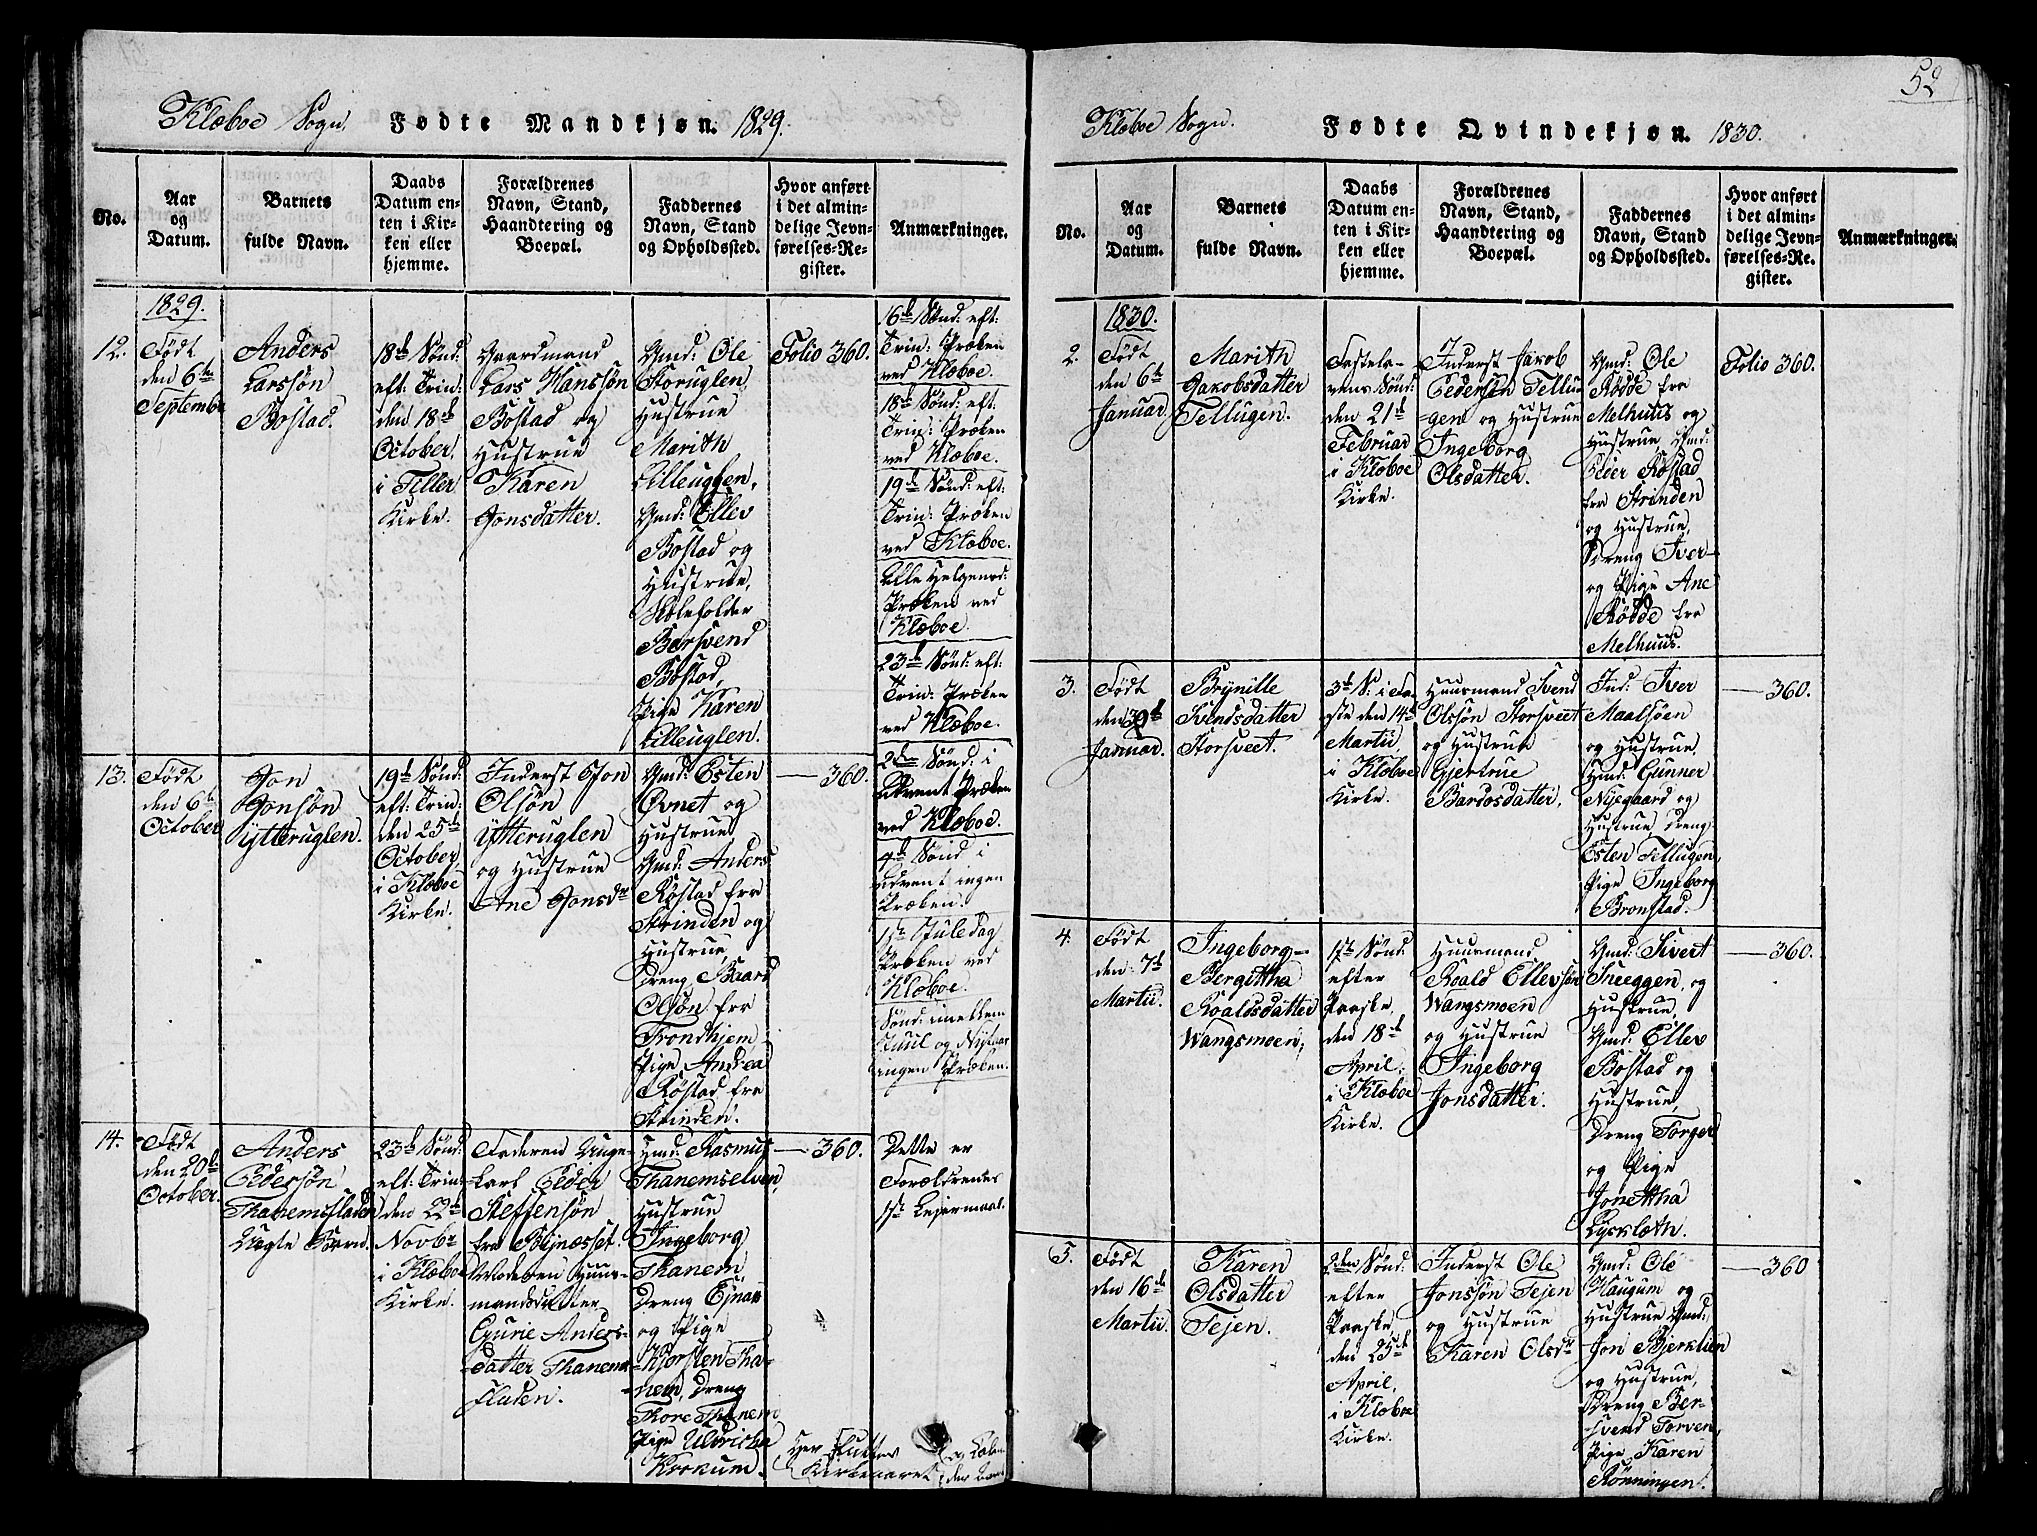 52
Klæboe Sogn. Fødte Mandkjøn. 1829.
No.
Aar
og
Datum.
Barnets
fulde Navn.
Daabs
Datum en-
ten i Kir-
ken eller
hjemme.
Forældrenes
Navn, Stand,
Haandtering og
Boepæl.
Faddernes
Navn, Stand
og Opholdssted.
Hvor anført
i det almin-
delige Jevn-
førelses-Re-
gister.
Anmærkninger.
1829.
12.
Født
den 6te
September
Anders
Larssøn
Bostad.
18d Sønd:
eft: Trin:
den 18d
October,
i Tiller
Kirke.
Gaardmand
Lars Hanssøn
Bostad og
Hustrue
Karen
Jonsdatter.
Gmd: Ole
Storuglen,
Hustrue
Marith
Lilleuglen,
Gmd: Ellev
Bostad og
Hustrue,
Skoleholder
Barsvend
Bostad,
Pige Karen
Lilleuglen.
Folio 360.
16d Sønd: eft:
Trin: Præken
ved Klæboe.
18d Sønd: eft:
Trin: Præken
ved Klæboe.
19d Sønd: eft:
Trin: Præken
ved Klæboe.
Alle Helgensd:
Præken ved
Klæboe.
23d Sønd: eft:
Trin: Præken
ved Klæboe.
2den Sønd: i
Advent Præken
ved Klæboe.
4d Sønd i
Advent ingen
Præken.
1ste Juledag
Præken ved
Klæboe.
Sønd: imellem
Juul og Nytaar
ingen Præken.
13.
Født
den 6te
October
Jon
Jonsøn
Ytteruglen.
19d Sønd:
eft: Trin:
den 25de
October,
i Klæboe
Kirke.
Inderst Jon
Olsøn
Ytteruglen
og Hustrue
Ane Jonsdr
Gmd: Esten
Øvnet og
Hustrue,
Gmd: Anders
Røstad fra
Strinden og
Hustrue,
Dreng Baard
Olsøn fra
Trondhjem
Pige Andrea
Røstad fra
Strinden.
— 360.
14.
Født
den 20d
October.
Anders
Pedersøn
Thanemsfladen
Uægte Barn
23d Sønd:
eft: Trin:
den 22d
Novbr
i Klæboe
Kirke.
Faderen Unge-
karl Peder
Steffensøn
fra Bynæsset.
Moderen Huus-
mandsdatter
Gurie Anders-
datter Thanems-
fladen.
Gmd: Rasmus
Thanemselven,
Hustrue
Ingeborg
Thanem,
Dreng Ejnar
og Pige
Kjersten Tha-
nem, Dreng
Thore Thanem
Pige Ulvricha
Krokum.
— 360.
Dette er
Forældrenes
1ste Leiermaal.
Her sluttes
Kirkeaaret
Klæboe Sogn. Fødte Qvindekjøn. 1830.
No.
Aar
og
Datum.
Barnets
fulde Navn.
Daabs
Datum en-
ten i Kir-
ken eller
hjemme.
Forældrenes
Navn, Stand,
Haandtering og
Boepæl.
Faddernes
Navn, Stand
og Opholdssted.
Hvor anført
i det almin-
delige Jevn-
førelses-Re-
gister.
Anmærkninger.
1830.
2.
Født
den 6te
Januar.
Marith
Jakobsdatter
Tellugen.
Fastela-
vens Sønd:
den 21d
Februar
i Klæboe
Kirke.
Inderst Jakob
Pedersen Tellu-
gen og Hustrue
Ingeborg
Olsdatter.
Gmd: Ole
Rødde fra
Melhuus og
Hustrue, Gmd:
Peder Røstad
fra Strinden
og Hustrue,
Dreng Iver
og Pige Ane
Rødde fra
Melhuus.
Folio 360.
3.
Født
Januar.
Brynille
Svendsdatter
Storsveet.
3d S: i Fa-
ste den 14d
Martii,
i Klæboe
Kirke.
Huusmand Svend
Olssøn Storsveet
og Hustrue
Gjertrue
Bardosdatter.
Ind: Iver
Maalsøen
og Hustrue,
Hmd: Gunner
Nyegaard og
Hustrue, Dreng
Esten Tellugen,
Pige Ingeborg
Bronstad.
— 360.
4.
Født
den 7d
Martii.
Ingeborg
Bergittha
Roaldsdatter
Wangsmoen,
1ste Sønd:
efter
Paaske,
den 18d
April,
i Klæboe
Kirke.
Huusmand
Roald Ellevsøn
Wangsmoen
og Hustrue
Ingeborg
Jonsdatter.
Gmd: Sivert
Sneeggen, og
Hustrue,
Gmd: Ellev
Bostad og
Hustrue,
Dreng Torger
og Pige
Jonettha
Lysklæth.
— 360.
5.
Født
den 16de
Martii.
Karen
Olsdatter
Tejen.
2den Sønd:
efter
Paaske,
den 25d
April,
i Klæboe
Kirke.
Inderst Ole
Jonssøn Tejen
og Hustrue
Karen Olsdr
Gmd: Ole
Haugum og
Hustrue, Gmd:
Jon Bjerklien
og Hustrue,
Dreng Ber-
svend Torven,
Pige Karen
Rønningen.
— 360